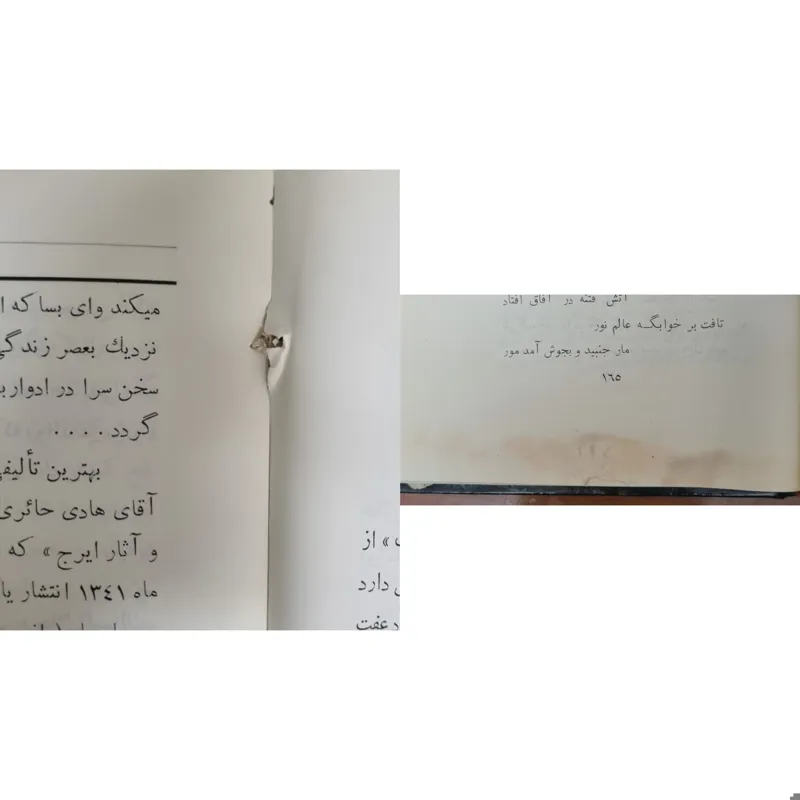 میکند وای بسا که
نزدیك بعصر زندگی
سخن سرا در ادوار
گردد . . . .
بهترین تألیفی
آقای هادی حائری
و آثار ایرج » که
ماه ۱۳٤۱ انتشار
» از
دارد
عفت
آتش فتنه در آفاق افتاد
تافت بر خوابگـه عالم نور
مار جنبید و بجوش آمد مور
۱٦٥